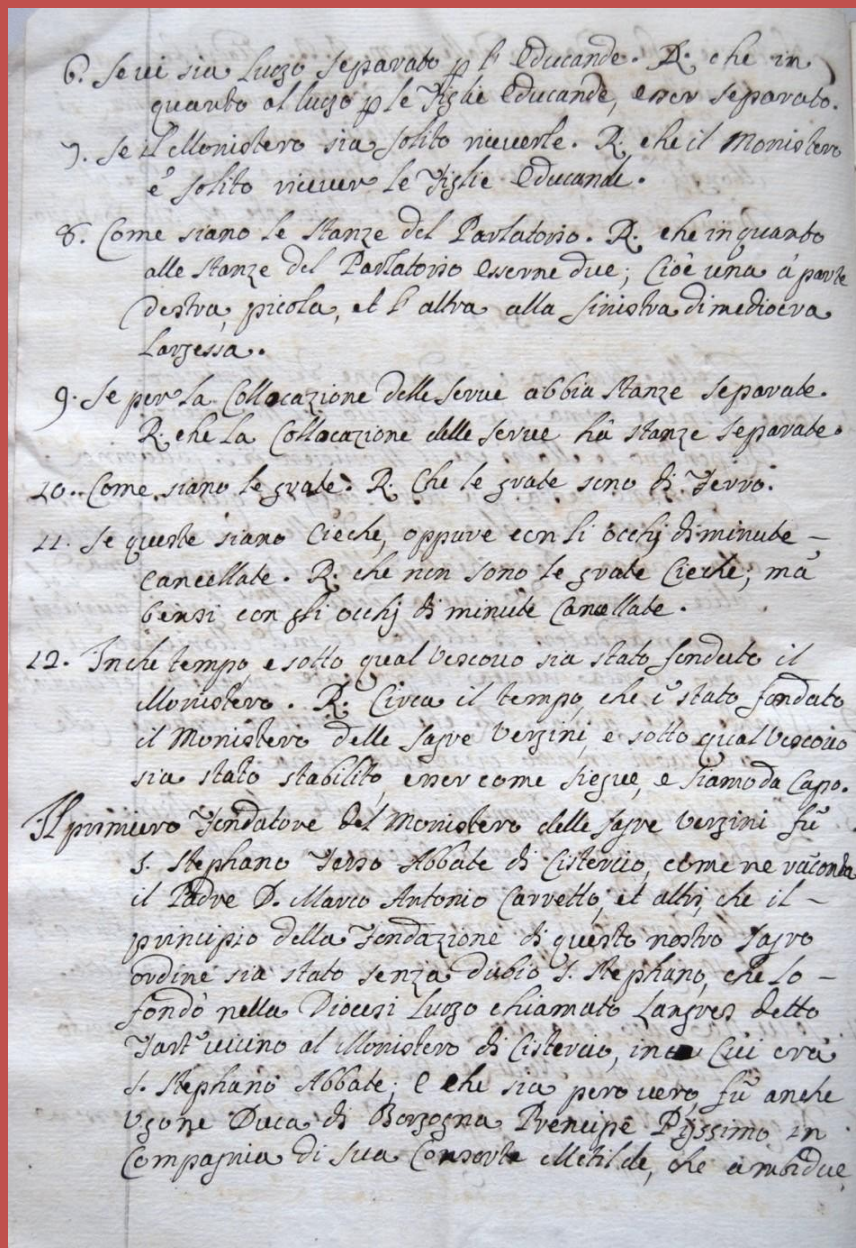 6. Se vi sia luogo separato p l'Educande. R. che in
quanto al luogo p le Figlie Educande, esser separato.
7. Se il Monistero sia solito riceverle. R. che il Monistero
e' solito ricever le Figlie Educande.
8. Come siano le stanze del Parlatorio. R. che in quanto
alle stanze del Parlatorio esserne due; Cioè una à parte
destra, picola, et l'altra alla sinistra di mediocra
largessa.
9. Se per la Collocazione delle serve abbia stanze separate.
R. che la Collocazione delle serve hà stanze separate.
10. Come siano le grate. R. Che le grate sono di Ferro.
11. Se queste siano Cieche, oppure con li occhj di minute -
cancellate. R. che non sono le grate Cieche, mà
bensi con gli occhj di minute Cancellate.
12. In che tempo, e sotto qual Vescovo sia stato fondato il
Monistero. R. Circa il tempo, che è stato fondato
il Monistero delle Sagre Vergini, e sotto qual Vescovo
sia stato stabilito, esser come siegue, e siamo da Capo.
Il primiero Fondatore del Monistero delle sagre Vergini fù
S. Stephano Terzo Abbate di Cistercio, come ne raconta
il Padre D. Marco Antonio Carretto, et altri, che il -
principio della Fondazione di questo nostro Sagro
ordine sia stato senza dubio S. Stephano, che lo -
fondò nella Diocesi Luogo chiamato Langres detto
Tart vicino al Monistero di Cistercio, in Cui era
S. Stephano Abbate; E che sia però vero, fù anche
Ugone Duca di Borgogna Prencipe Pijssimo in
Compagnia di sua Consorte Metilde, che ambidue